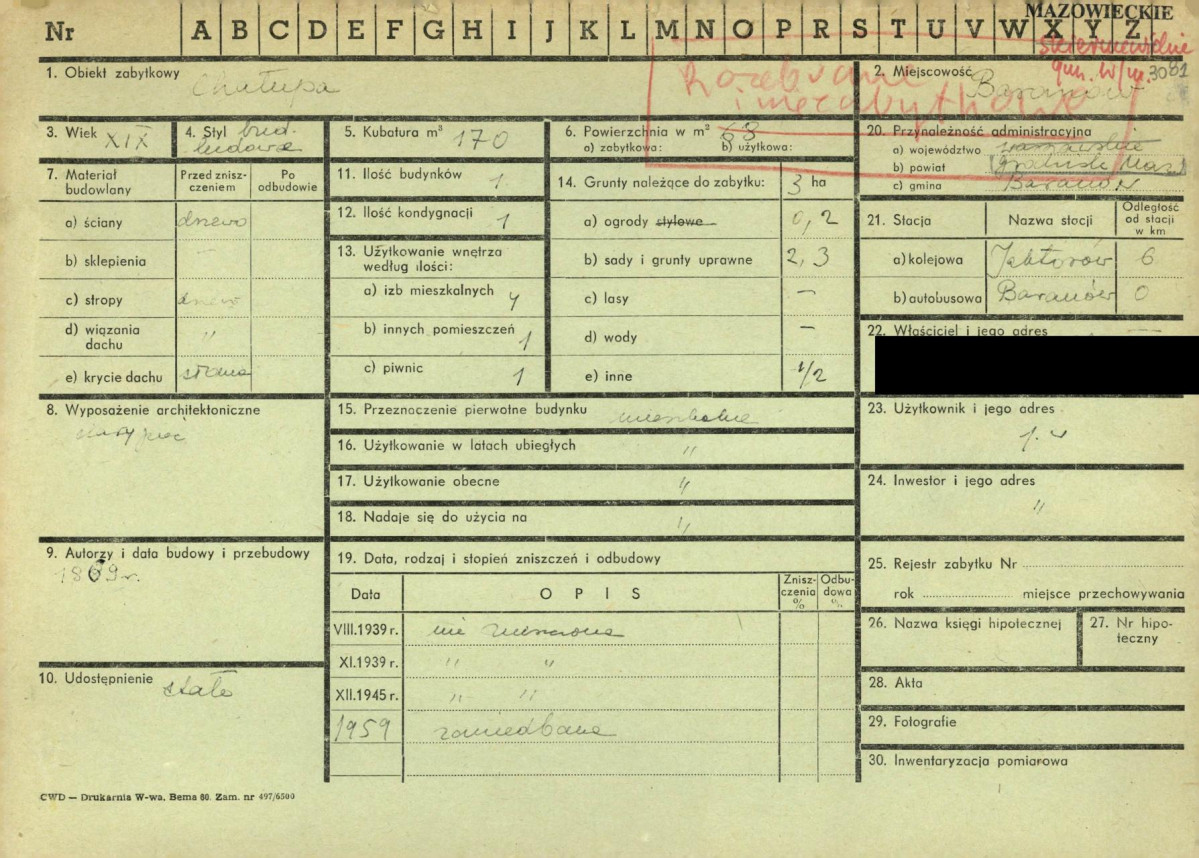 Nr A B C D E F G H I J K L M N O P R S T U V W X Y Z
MAZOWIECKIE
skierniewickie
3081
1. Obiekt zabytkowy
Chałupa
Rozebrane
i niezabytkowe
2. Miejscowość
Baranów
3. Wiek XIX
4. Styl bud.
ludowe
5. Kubatura m³ 170
6. Powierzchnia w m² 68
a) zabytkowa: b) użytkowa:
20. Przynależność administracyjna
a) województwo warszawskie
b) powiat Grodzisk Maz.
c) gmina Baranów
7. Materiał
budowlany
Przed znisz-
czeniem
Po
odbudowie
a) ściany drzewo
b) sklepienia —
c) stropy drzewo
d) wiązania
dachu "
e) krycie dachu słoma
11. Ilość budynków 1
12. Ilość kondygnacji 1
13. Użytkowanie wnętrza
według ilości:
a) izb mieszkalnych 4
b) innych pomieszczeń 1
c) piwnic 1
14. Grunty należące do zabytku: 3 ha
a) ogrody stylowe 0,2
b) sady i grunty uprawne 2,3
c) lasy —
d) wody —
e) inne 1/2
21. Stacja
Nazwa stacji
Odległość
od stacji
w km
a) kolejowa Jaktorów 6
b) autobusowa Baranów 0
22. Właściciel i jego adres
8. Wyposażenie architektoniczne
stary piec
15. Przeznaczenie pierwotne budynku mieszkalne
16. Użytkowanie w latach ubiegłych "
17. Użytkowanie obecne "
18. Nadaje się do użycia na "
23. Użytkownik i jego adres
j. w
24. Inwestor i jego adres
"
9. Autorzy i data budowy i przebudowy
1869 r.
19. Data, rodzaj i stopień zniszczeń i odbudowy
Data
O P I S
Znisz-
czenia
%
Odbu-
dowa
%
VIII.1939 r. nie zniszczone
XI.1939 r. " "
XII.1945 r. " "
1959 zaniedbane
10. Udostępnienie stałe
25. Rejestr zabytku Nr
rok miejsce przechowywania
26. Nazwa księgi hipotecznej
27. Nr hipo-
teczny
28. Akta
29. Fotografie
30. Inwentaryzacja pomiarowa
CWD — Drukarnia W-wa, Bema 60. Zam. nr 497/6500